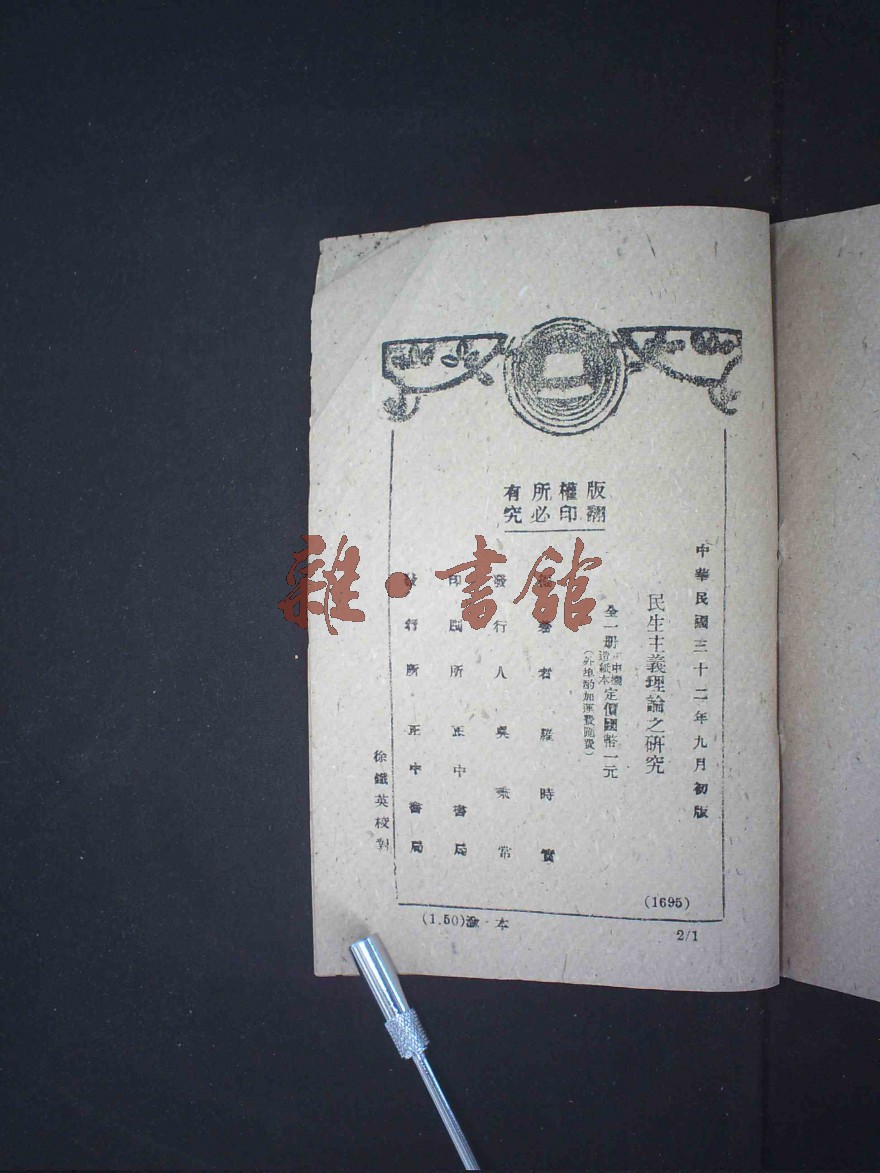 版權所有
翻印必究
中華民國三十二年九月初版
民生主義理論之研究
全一册 正中機造紙本 定價國幣一元
(外埠酌加運費匯費)
著者 羅時實
發行人 吳秉常
印刷所 正中書局
發行所 正中書局
徐鐵英校對
(1695)
(1.50)渝·本
2/1
雜·書館